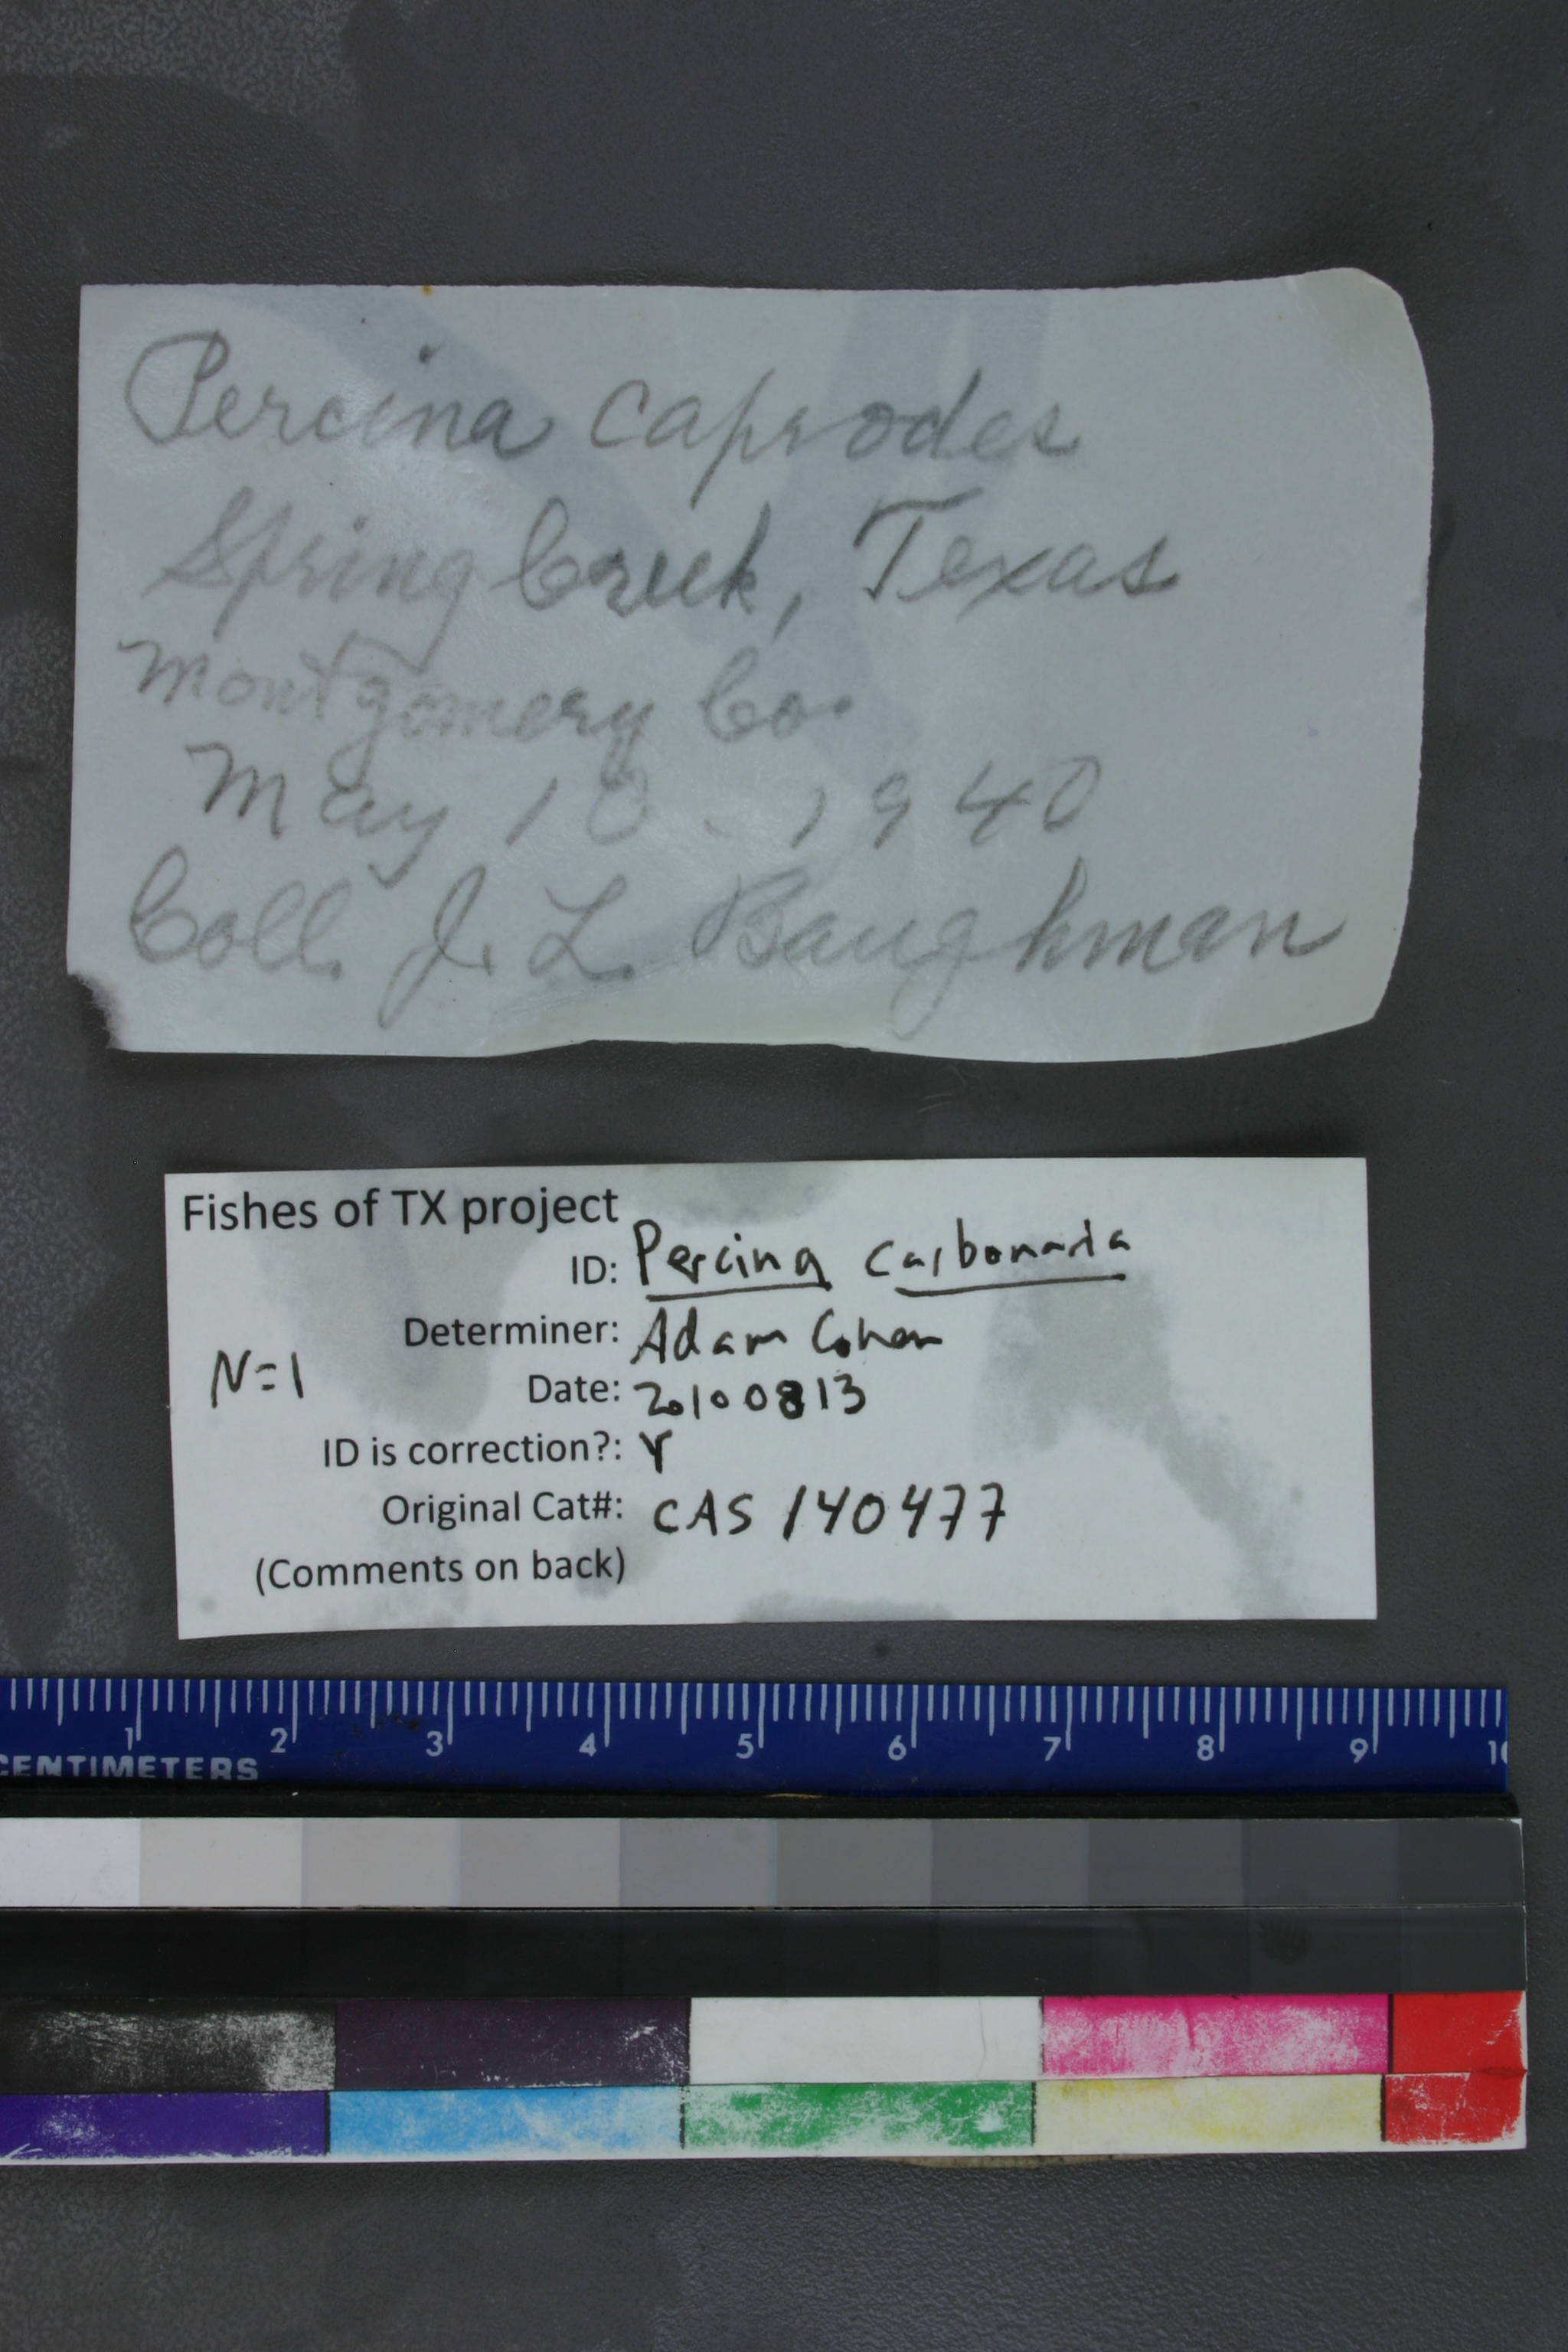 Percina caprodes
Spring Creek, Texas
Montgomery Co.
May 10 - 1940
Coll. J. L. Baughman
Fishes of TX project
ID: Percina carbonaria
Determiner: Adam Cohen
N=1
Date: 20100813
ID is correction?: Y
Original Cat#: CAS 140477
(Comments on back)
1 2 3 4 5 6 7 8 9 10
CENTIMETERS